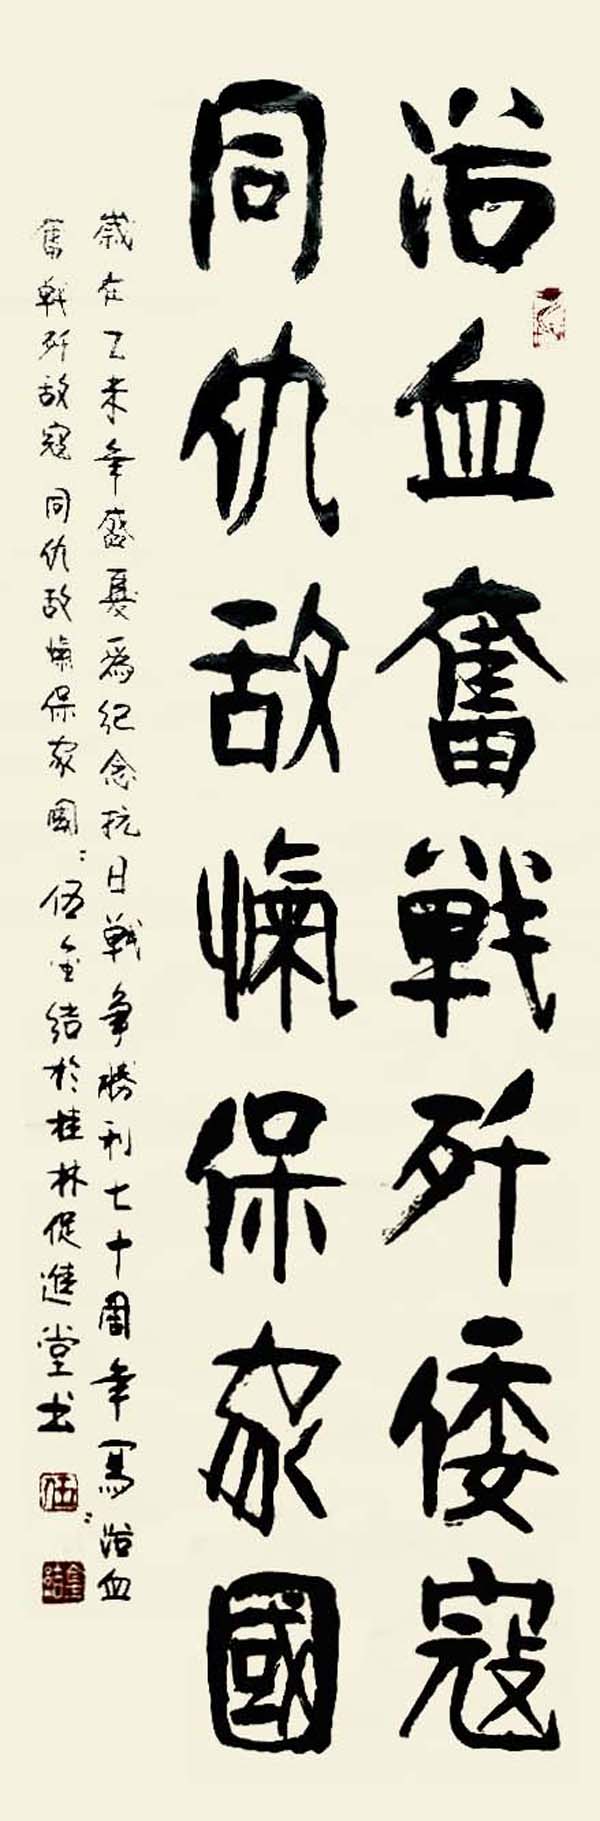 浴血奮戰歼倭寇
同仇敌愾保家國
歲在乙未年盛夏為紀念抗日戰争勝利七十周年寫浴血
奮戰歼敌寇同仇敌愾保家國：伍金結於桂林促進堂书
伍
金結